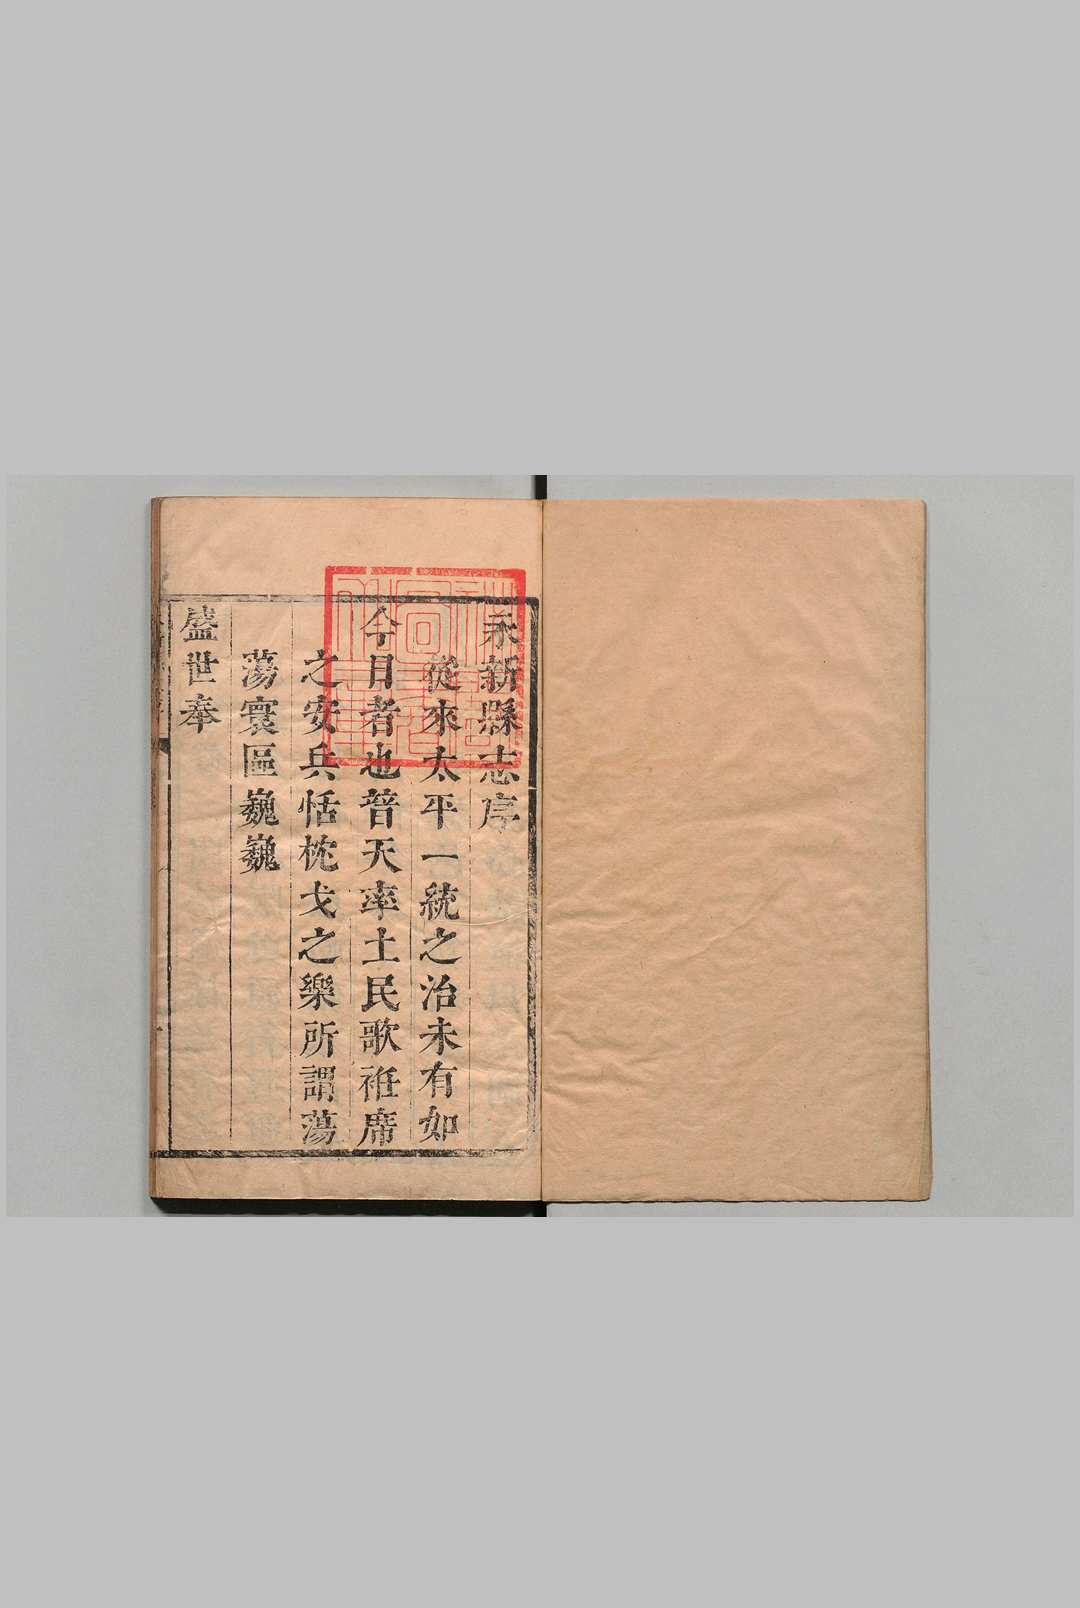 永新縣志序
從來太平一統之治未有如
今日者也普天率土民歌袵席
之安兵恬枕戈之樂所謂蕩
蕩寰區巍巍
盛世奉